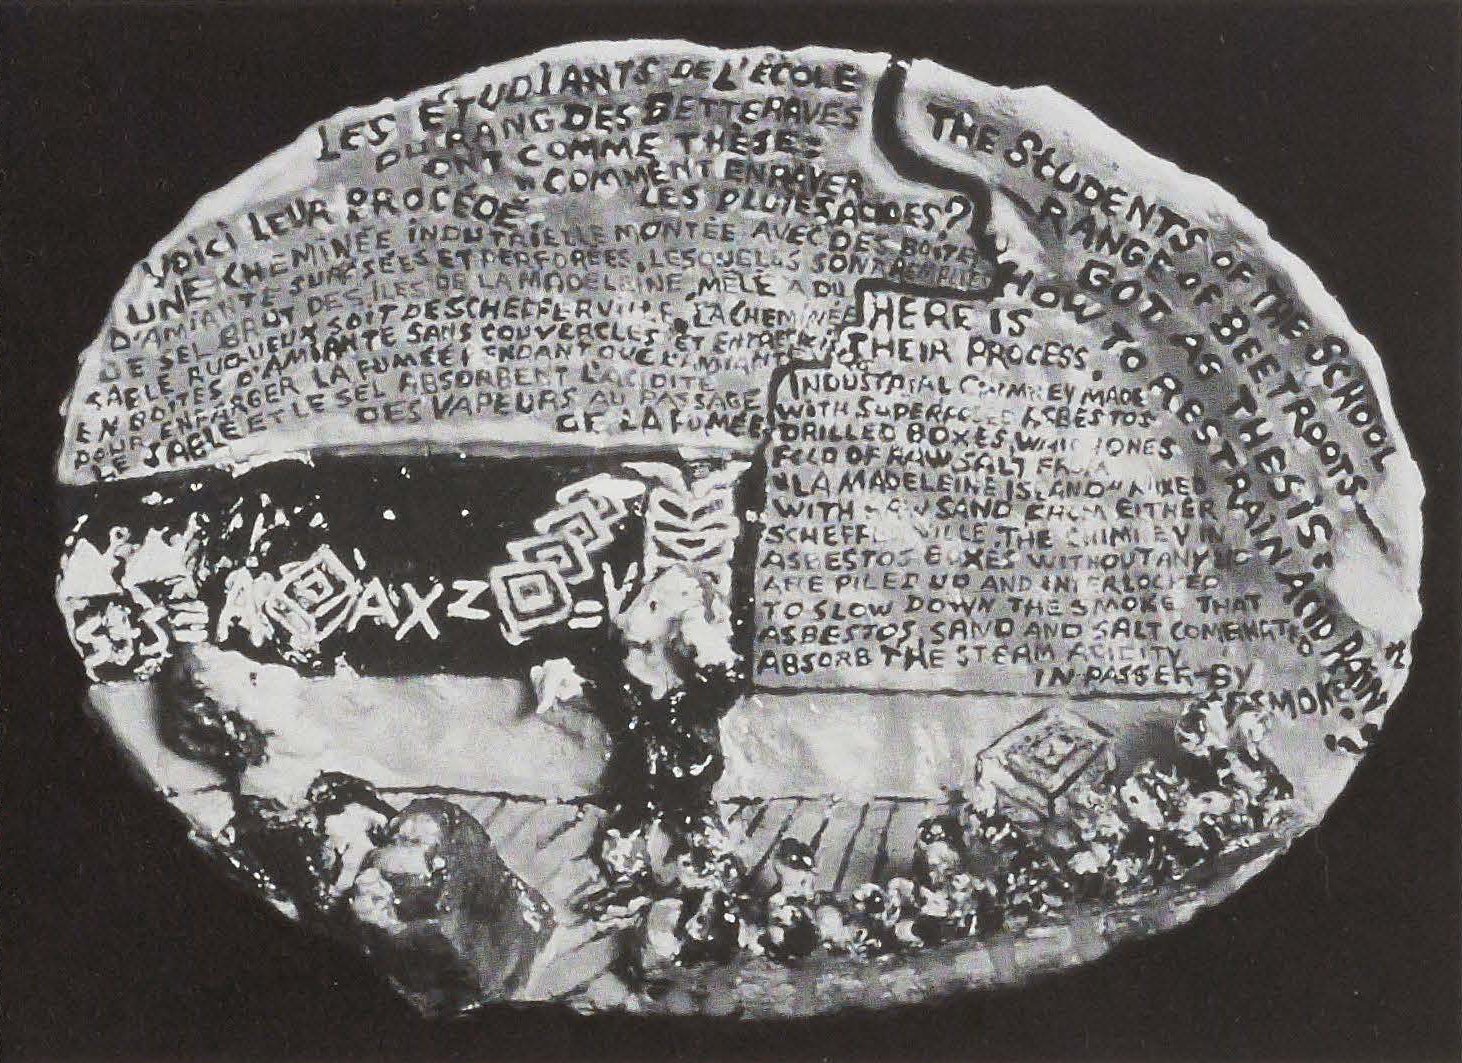 LES ÉTUDIANTS DE L'ÉCOLE
DU RANG DES BETTERAVES
ONT COMME THÈSE:
"COMMENT ENRAYER
LES PLUIES ACIDES?
VOICI LEUR PROCÉDÉ
D'UNE CHEMINÉE INDUTRIELLE MONTÉE AVEC DES BOITES
D'AMIANTE ET PERFORÉES, LESQUELLES SONT REMPLIES
DE SEL BRUT DES ÎLES DE LA MADELEINE, MÊLÉ À DU
SABLE RUGUEUX SOIT DE SCHEFFERVILLE. LA CHEMINÉE
EN BOITES D'AMIANTE SANS COUVERCLES ET
POUR LA FUMÉE QUE L'AMIANTE
LE SABLE ET LE SEL ABSORBENT L'ACIDITÉ
DES VAPEURS AU PASSAGE
DE LA FUMÉE
THE STUDENTS OF THE SCHOOL
RANGE OF BEETROOTS
GOT AS THESIS:
"HOW TO RESTRAIN ACID RAIN"?
HERE IS
THEIR PROCESS.
INDUSTRIAL CHIMNEY MADE
WITH ASBESTOS
DRILLED BOXES, ONES
OF RAW SALT FROM
"LA MADELEINE ISLAND" MIXED
WITH RAW SAND FROM EITHER
SCHEFFERVILLE. THE CHIMNEY IN
ASBESTOS BOXES WITHOUT ANY
ARE PILED UP AND INTERLOCKED
TO SLOW DOWN THE SMOKE THAT
ASBESTOS, SAND AND SALT COMENG TO
ABSORB THE STEAM ACIDITY
IN PASSER-BY
OF SMOKE.